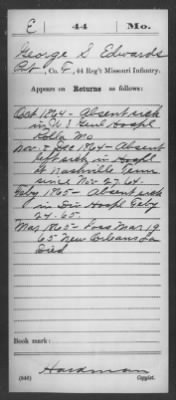 E 44 Mo.
George S Edwards
Pvt, Co. F, 44 Reg't Missouri Infantry.
Appears on Returns as follows:
Oct 1864 - Absent sick
in U.S. Genl Hospl
Rolla Mo
Nov. & Dec 1864 - Absent
left sick in Hospl
at Nashville Tenn
since Nov 27.64.
Feby 1865 - Absent sick
in Div Hospl Feby
24.65.
Mar 1865 - Loss Mar 19
65 New Orleans La
Died
Book mark:
Hardman
(546) Copyist.